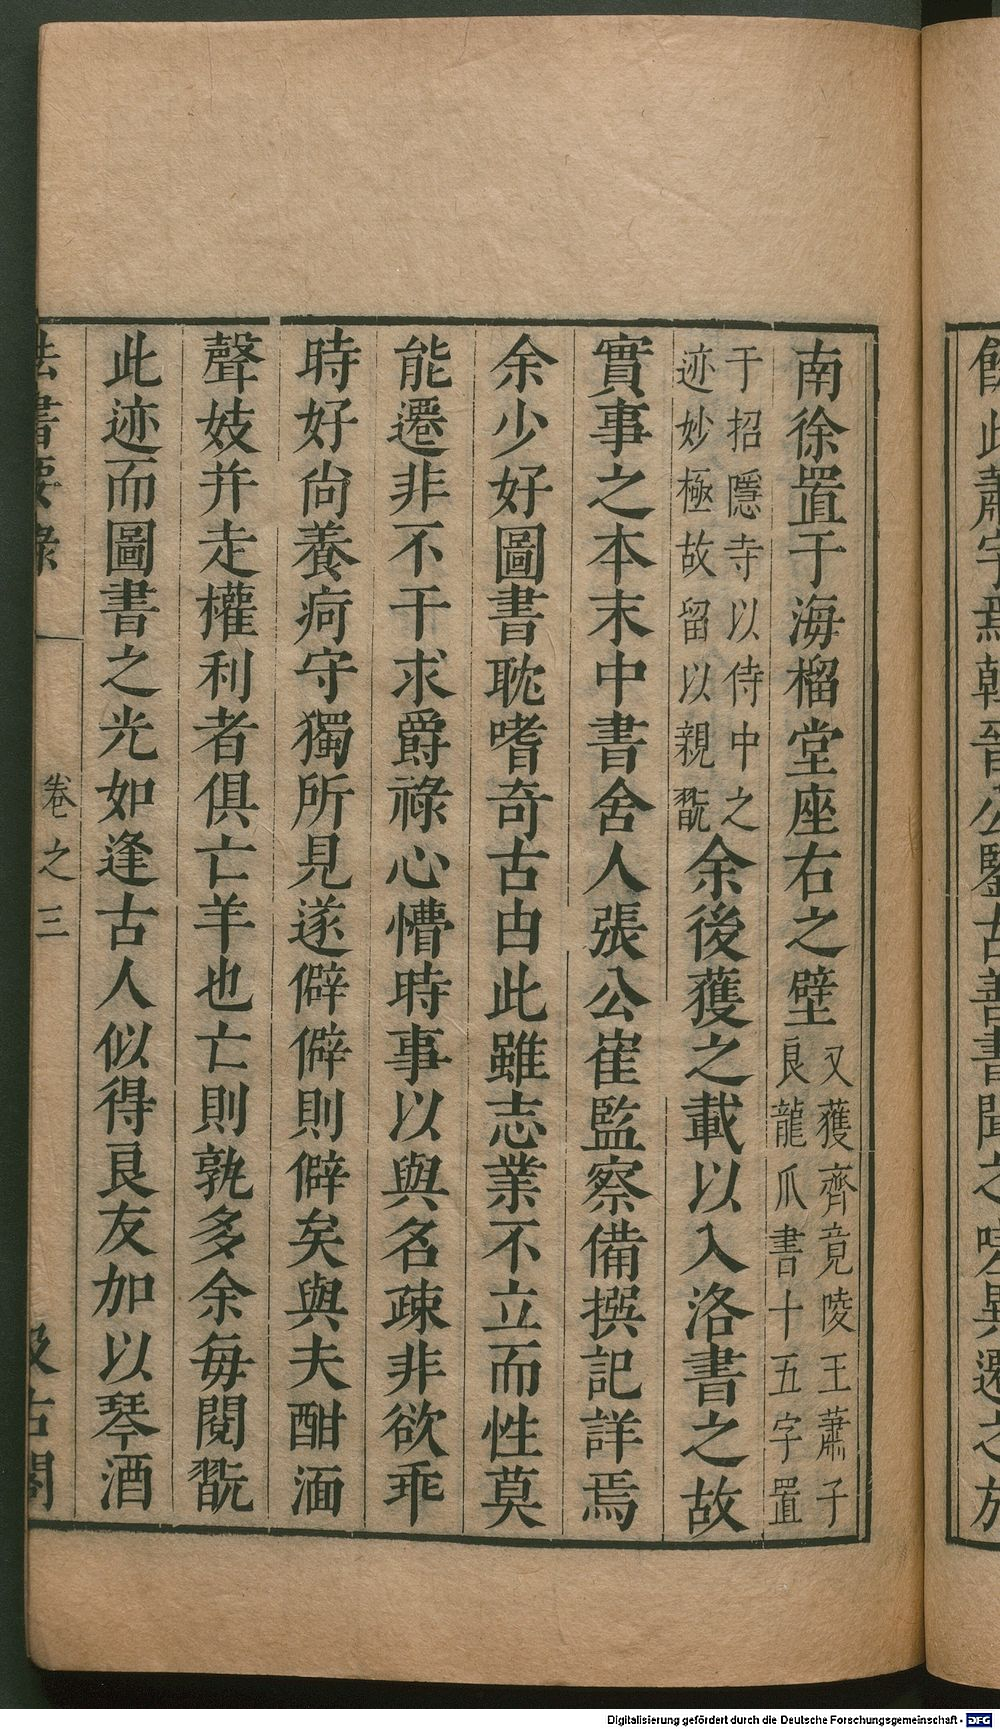 館此蕭字焉韓晉公鑒古善書聞之嗟異還之於
南徐置于海榴堂座右之壁又獲齊竟陵王蕭子
良龍爪書十五字置
于招隱寺以侍中之
迹妙極故留以親翫余後獲之載以入洛書之故
實事之本末中書舍人張公崔監察備撰記詳焉
余少好圖書耽嗜奇古甴此雖志業不立而性莫
能遷非不干求爵祿心懵時事以與名疎非欲乖
時好尙養痾守獨所見遂僻僻則僻矣與夫酣湎
聲妓并走權利者俱亡羊也亡則孰多余每閱翫
此迹而圖書之光如逢古人似得良友加以琴酒
法書要錄
卷之三
汲古閣
Digitalisierung gefördert durch die Deutsche Forschungsgemeinschaft - DFG